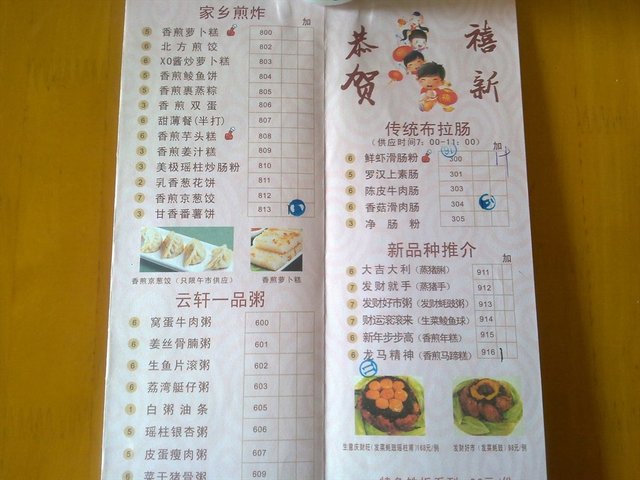 家乡煎炸
加
5 香煎萝卜糕 800
6 北方煎饺 802
6 XO酱炒萝卜糕 803
5 香煎鲮鱼饼 804
5 香煎裹蒸粽 805
3 香煎双蛋 806
6 甜薄餐(半打) 807
6 香煎芋头糕 808
3 香煎姜汁糕 809
3 美极瑶柱炒肠粉 810
2 乳香葱花饼 811
7 香煎京葱饺 812
3 甘香番薯饼 813
香煎京葱饺(只限午市供应) 香煎萝卜糕
云轩一品粥
6 窝蛋牛肉粥 600
6 姜丝骨腩粥 601
6 生鱼片滚粥 602
6 荔湾艇仔粥 603
1 白粥油条 605
5 瑶柱银杏粥 606
5 皮蛋瘦肉粥 607
6 菜干猪骨粥 609
恭贺
禧新
传统布拉肠
(供应时间7:00-11:00)
加
6 鲜虾滑肠粉 300
5 罗汉上素肠 301
6 陈皮牛肉肠 303
6 香菇滑肉肠 304
3 净肠粉 305
新品种推介
加
6 大吉大利(蒸猪脷) 911
7 发财就手(蒸猪手) 912
7 发财好市粥(发财蚝豉粥) 913
7 财运滚滚来(生菜鲮鱼球) 914
6 新年步步高(香煎年糕) 915
6 龙马精神(香煎马蹄糕) 916
发财好市(发菜蚝豉)